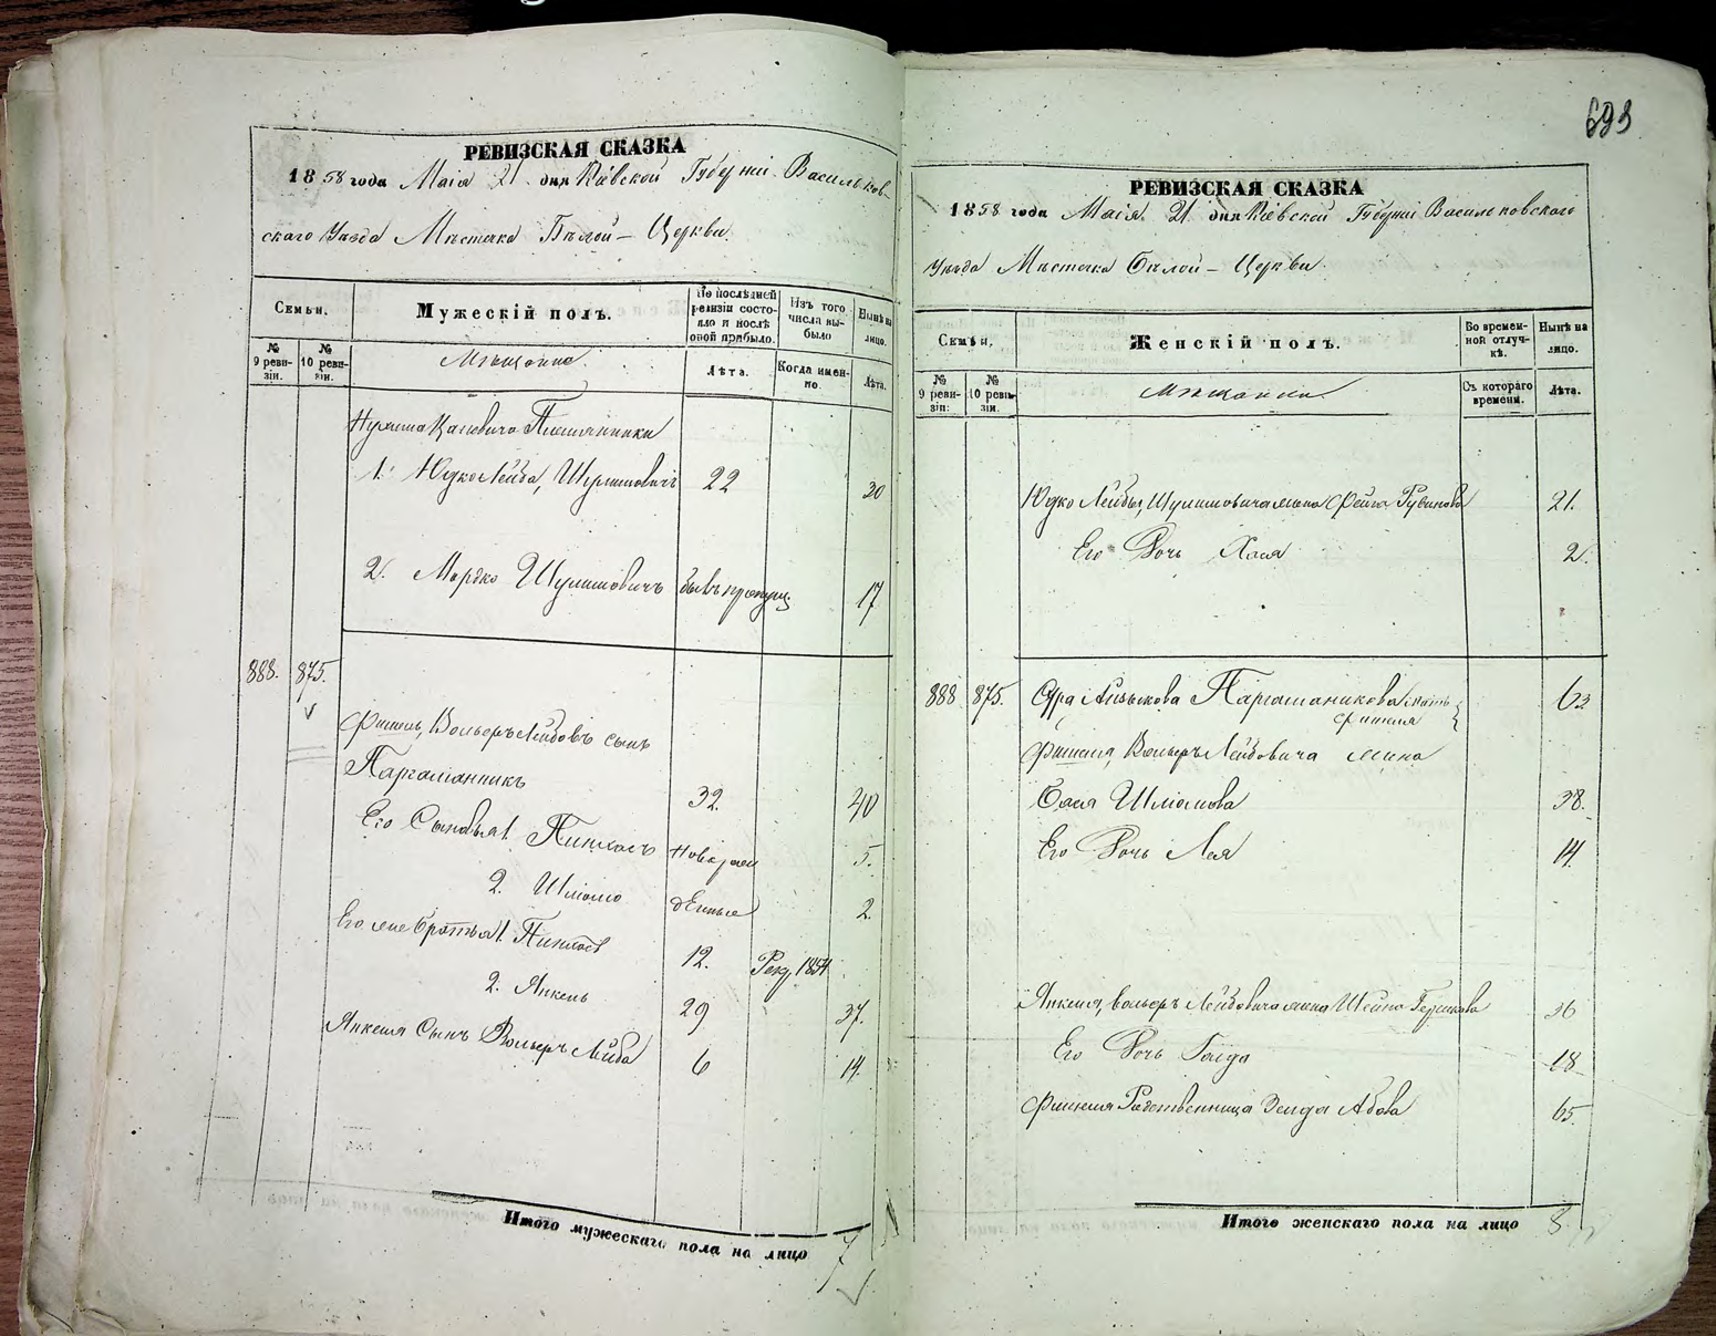 РЕВИЗСКАЯ СКАЗКА
1858 года Маія 21 дня Кіевской Губерніи Васильков-
скаго Уѣзда Мѣстечка Бѣлой - Церкви.
Семьи.
Мужескій полъ.
По послѣдней ревизіи состояло и послѣ оной прибыло.
Изъ того числа выбыло
Нынѣ на лицо.
№ 9 ревизіи.
№ 10 ревизіи.
Мѣщане.
Лѣта.
Когда именно.
Лѣта.
1. Юдко Лейба, Шулимовичъ 22 30
2. Мордко Шулимовичъ былъ пропущ. 17
888. 875.
Фишель, Вольфъ Лейбовъ сынъ
Паргаманникъ 32. 40
Его Сыновья 1. Пинхасъ Новорож 5.
2. Шліомо денные 2.
Его же братья 1. Пинхасъ 12. Рекр. 1854
2. Янкель 29 37.
Янкеля Сынъ Вольфъ Лейба 6 14.
Итого мужескаго пола на лицо 7
693
РЕВИЗСКАЯ СКАЗКА
1858 года Маія 21 дня Кіевской Губерніи Васильковскаго
Уѣзда Мѣстечка Бѣлой - Церкви.
Семьи.
Женскій полъ.
Во временной отлучкѣ.
Нынѣ на лицо.
№ 9 ревизіи:
№ 10 ревизіи.
Мѣщанки.
Съ котораго времени.
Лѣта.
Юдко Лейбы, Шулимовича жена Фейга Рувинова 21.
Его Дочь Хая 2.
888 875. Сура Айзыкова Паргаманикова мать 63
Фишеля
Фишеля, Вольфъ Лейбовича жена
Бася Шліомова 38.
Его Дочь Лея 14.
Янкеля, Вольфъ Лейбовича жена Шейна Гершкова 36
Его Дочь Голда 18
Фишеля Родственница Зелда Абова 65.
Итого женскаго пола на лицо 8.